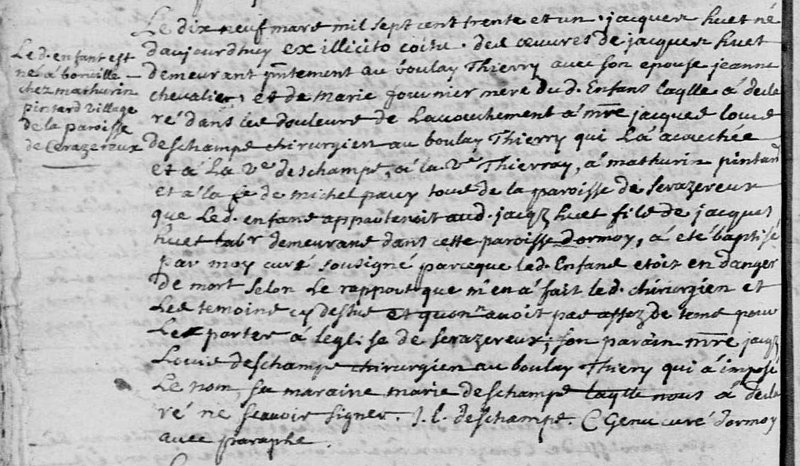 Led. enfant est
né à bonville
chez mathurin
pintard village
de la paroisse
de Cerazereux
Le dix neuf mars mil sept cent trente et un. jacques huet né
d'aujourdhuy ex illicito coitu. des oeuvres de jacques huet
demeurant pntement au boulay Thierry avec son epouse jeanne
chevalier, et de marie fournier mere dud. Enfans laqlle a decla
ré dans les douleurs de Lacouchement à mre jacques louis
deschamps chirurgien au boulay Thierry qui La acouchée
et à La Ve deschamps, à la Ve Thierray, à mathurin pintard
et à la fe de michel pavy tous de la paroisse de Serazereux
que Led. enfant appartenoit aud. jacqz huet fils de jacques
huet labr demeurant dans cette paroisse dormoy, à été baptisé
par moy curé sousigné parceque led. Enfant etoit en danger
de mort selon Le rapport que m'en à fait led. chirurgien et
Les temoins cy dessus et quon n'avoit pas assez de tems pour
Le porter à leglise de serazereux; son parain mre jacqz
Louis deschamps chirurgien au boulay Thiery qui à imposé
Le nom, sa maraine marie deschamps laqlle nous à decla
ré ne scavoir signer. J. L. deschamps. C Genu curé dormoy
avec paraphe.